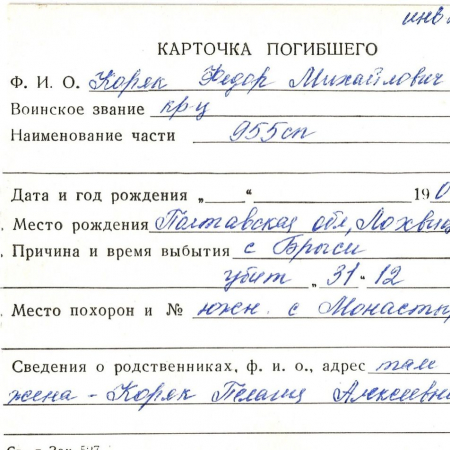 инв
КАРТОЧКА ПОГИБШЕГО
Ф. И. О. Коряк Федор Михайлович
Воинское звание кр-ц
Наименование части 955сп
Дата и год рождения „ “ 190
Место рождения Полтавская обл, Лохвиц
Причина и время выбытия с Брыси
убит „ 31 - 12
Место похорон и № южн. с Монастыр
Сведения о родственниках, ф. и. о., адрес там
жена - Коряк Пелагея Алексеевн